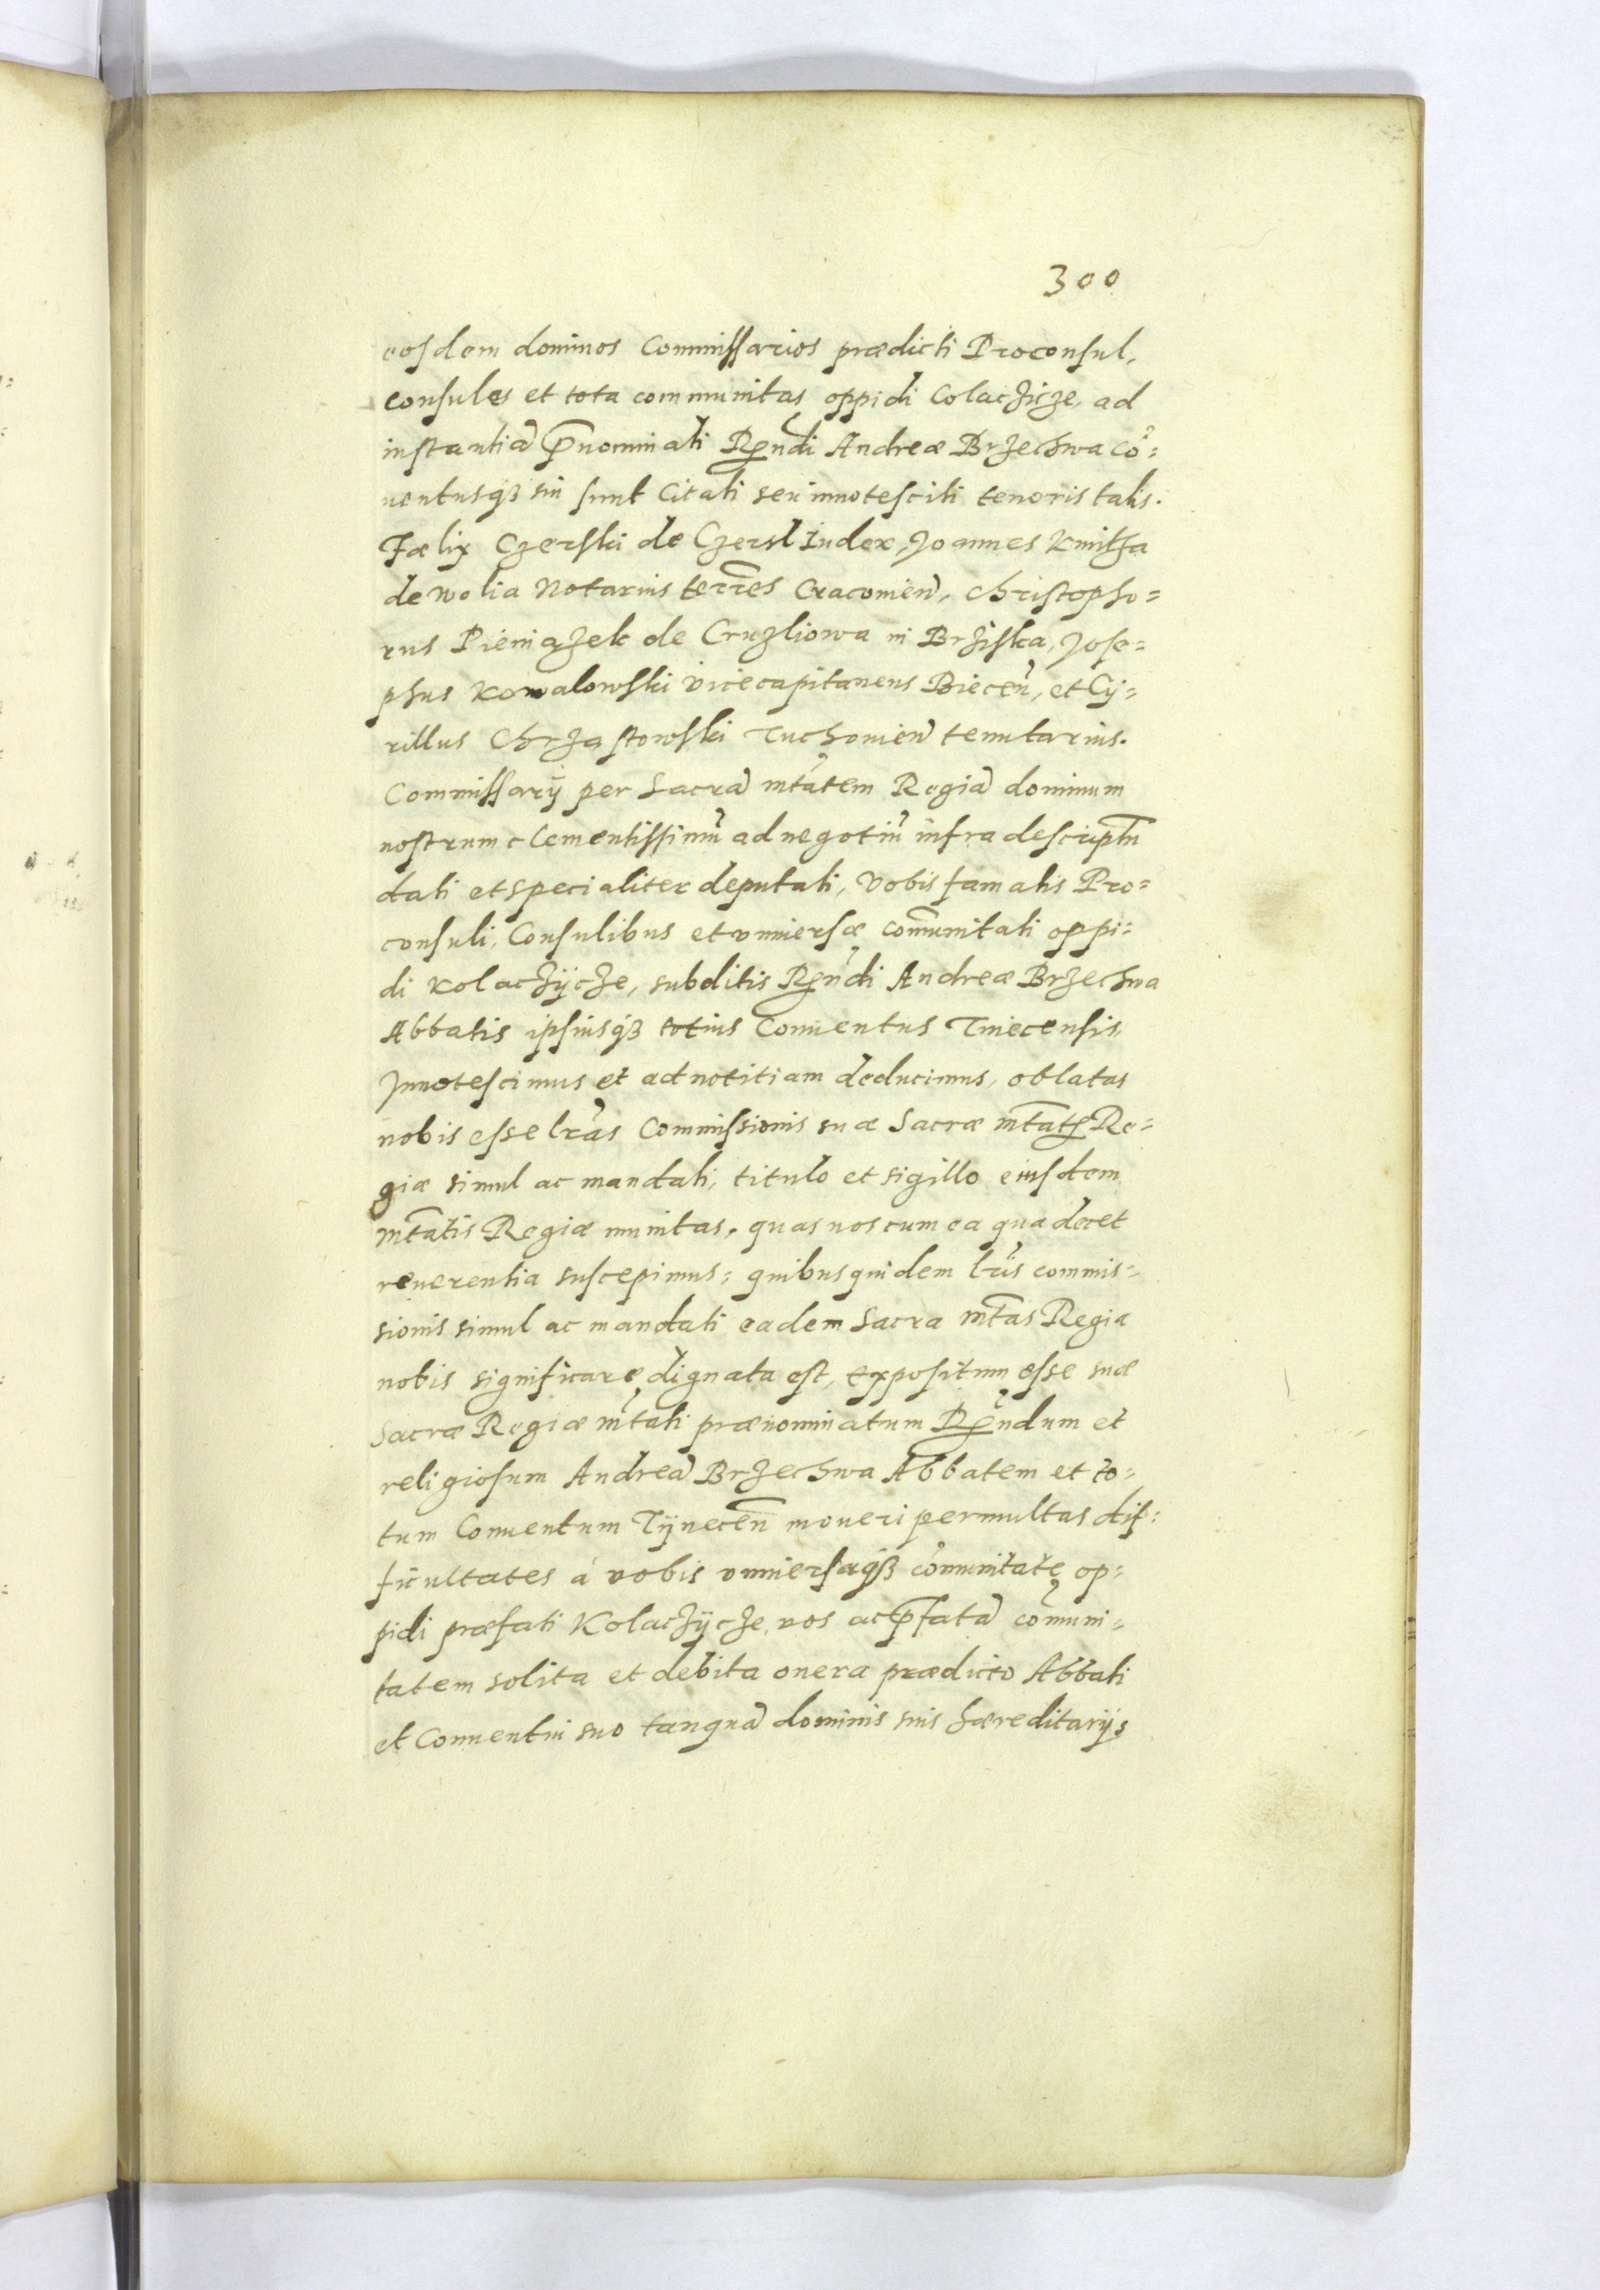 300
eosdem dominos Commissarios prædicti Proconsul,
consules et tota communitas oppidi Colaczicze, ad
instantiã p̄nominati Rṇdi Andreæ Brzechwa Cõ=
uentusq̃ sui sunt Citati seu innotesciti tenoris talis.
Fælix Czerski de Czersl Iudex, Joannes Kmitha
de Wolia Notarius terr̃es Cracovieñ, Christopho=
rus Pieniązek de Cruzliowa in Brziska, Jose=
phus Kowalowski vicecapitaneus Bieceñ, et Cy=
rillus Chrząstowski Tuchovieñ tenutarius.
Commissarij per Sacrã mtãtem Regiã dominum
nostrum clementissimũ ad negotiũ infra descriptũ
dati et specialiter deputati, vobis famatis Pro=
consuli, Consulibus et vniversæ com̃unitati oppi=
di Kolaczÿcze, subditis Rñdi Andreæ Brzechwa
Abbatis ipsiusq̃ totius Conuentus Tinecensis,
Innotescimus et ad notitiam deducimus, oblatas
nobis esse lrãs Commissionis suæ Sacræ mtãtis Re=
giæ simul ac mandati, titulo et sigillo eiusdem
mtãtis Regiæ munitas, quas nos cum ea qua decet
reuerentia suscepimus: quibus quidem lrĩs commis=
sionis simul ac mandati eadem Sacra mtãs Regia
nobis significare dignata est, expositum esse suæ
Sacræ Regiæ mtãti prænominatum Rñdum et
religiosum Andreã Brzechwa Abbatem et to=
tum Conuentum Tÿneceñ moueri permultas dif=
ficultates à vobis vniversaq̃ cõmunitate op=
pidi præfati Kolaczÿcze, vos ac p̄fatã cõmuni=
tatem solita et debita onera prædicto Abbati
et Conuentui suo tanquã dominis suis hæreditarijs